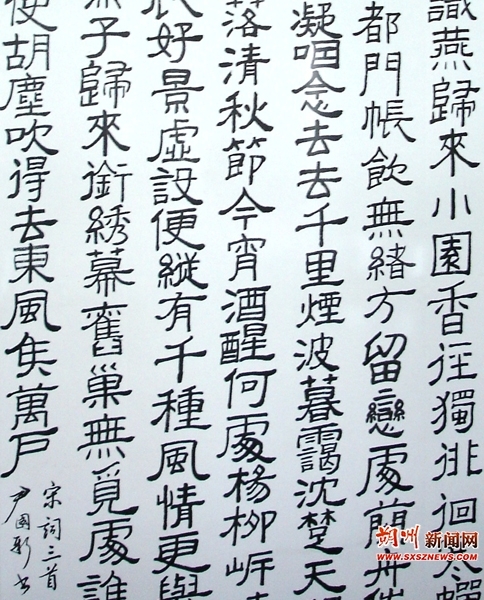 識燕歸來小園香徑獨徘徊寒蟬
都門帳飲無緒方留戀處蘭舟催
凝咽念去去千里煙波暮靄沈楚天
落清秋節今宵酒醒何處楊柳岸
辰好景虛設便縱有千種風情更與
燕子歸來銜綉幕舊巢無覓處誰
使胡塵吹得去東風矦萬戶
宋詞三首
尹國
朔州新闻网
WWW.SXSZNEWS.COM